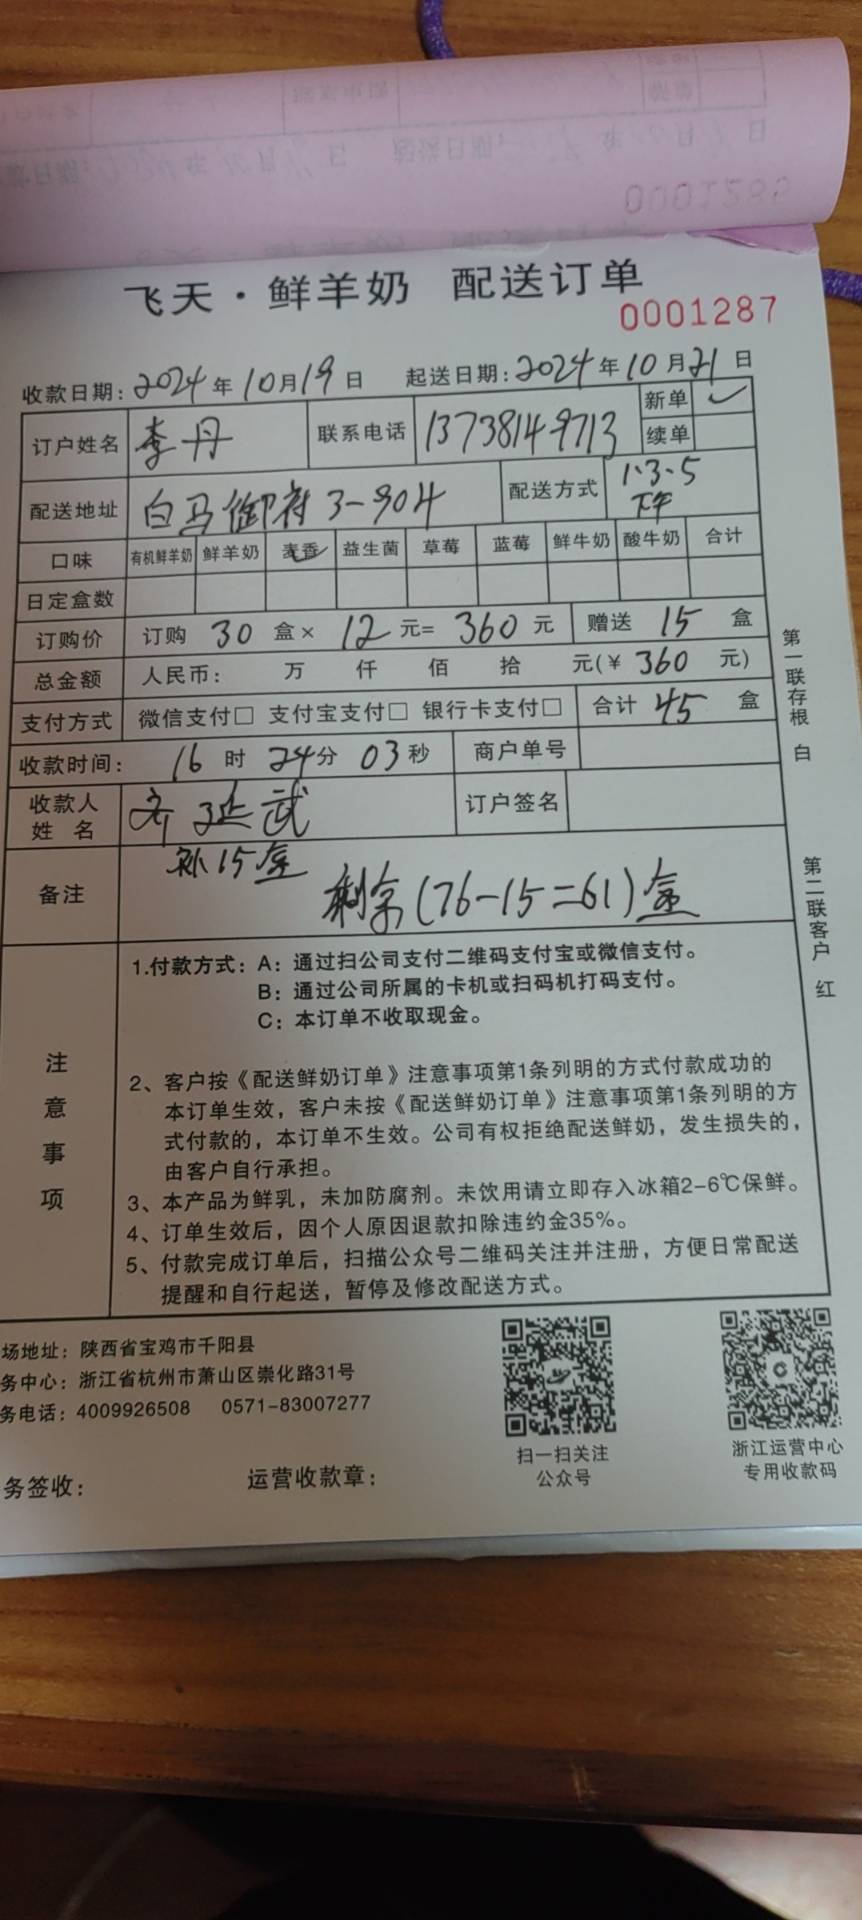 飞天·鲜羊奶 配送订单
0001287
收款日期：2024年10月19日 起送日期：2024年10月21日
订户姓名 李丹 联系电话 13738149713 新单 ✓
续单
配送地址 白马御府 3-904 配送方式 1·3·5 下午
口味 有机鲜羊奶 鲜羊奶 麦香 益生菌 草莓 蓝莓 鲜牛奶 酸牛奶 合计
日定盒数
订购价 订购 30 盒× 12 元= 360 元 赠送 15 盒
总金额 人民币： 万 仟 佰 拾 元(¥ 360 元)
支付方式 微信支付□ 支付宝支付□ 银行卡支付□ 合计 45 盒
收款时间： 16 时 24分 03秒 商户单号
收款人姓名 齐延武 订户签名
备注 补15盒
剩余(76-15=61)盒
第一联存根 白
第二联客户 红
注意事项
1.付款方式：A：通过扫公司支付二维码支付宝或微信支付。
B：通过公司所属的卡机或扫码机打码支付。
C：本订单不收取现金。
2、客户按《配送鲜奶订单》注意事项第1条列明的方式付款成功的
本订单生效，客户未按《配送鲜奶订单》注意事项第1条列明的方
式付款的，本订单不生效。公司有权拒绝配送鲜奶，发生损失的，
由客户自行承担。
3、本产品为鲜乳，未加防腐剂。未饮用请立即存入冰箱2-6℃保鲜。
4、订单生效后，因个人原因退款扣除违约金35%。
5、付款完成订单后，扫描公众号二维码关注并注册，方便日常配送
提醒和自行起送，暂停及修改配送方式。
场地址：陕西省宝鸡市千阳县
务中心：浙江省杭州市萧山区崇化路31号
务电话：4009926508 0571-83007277
扫一扫关注
公众号
浙江运营中心
专用收款码
务签收： 运营收款章：